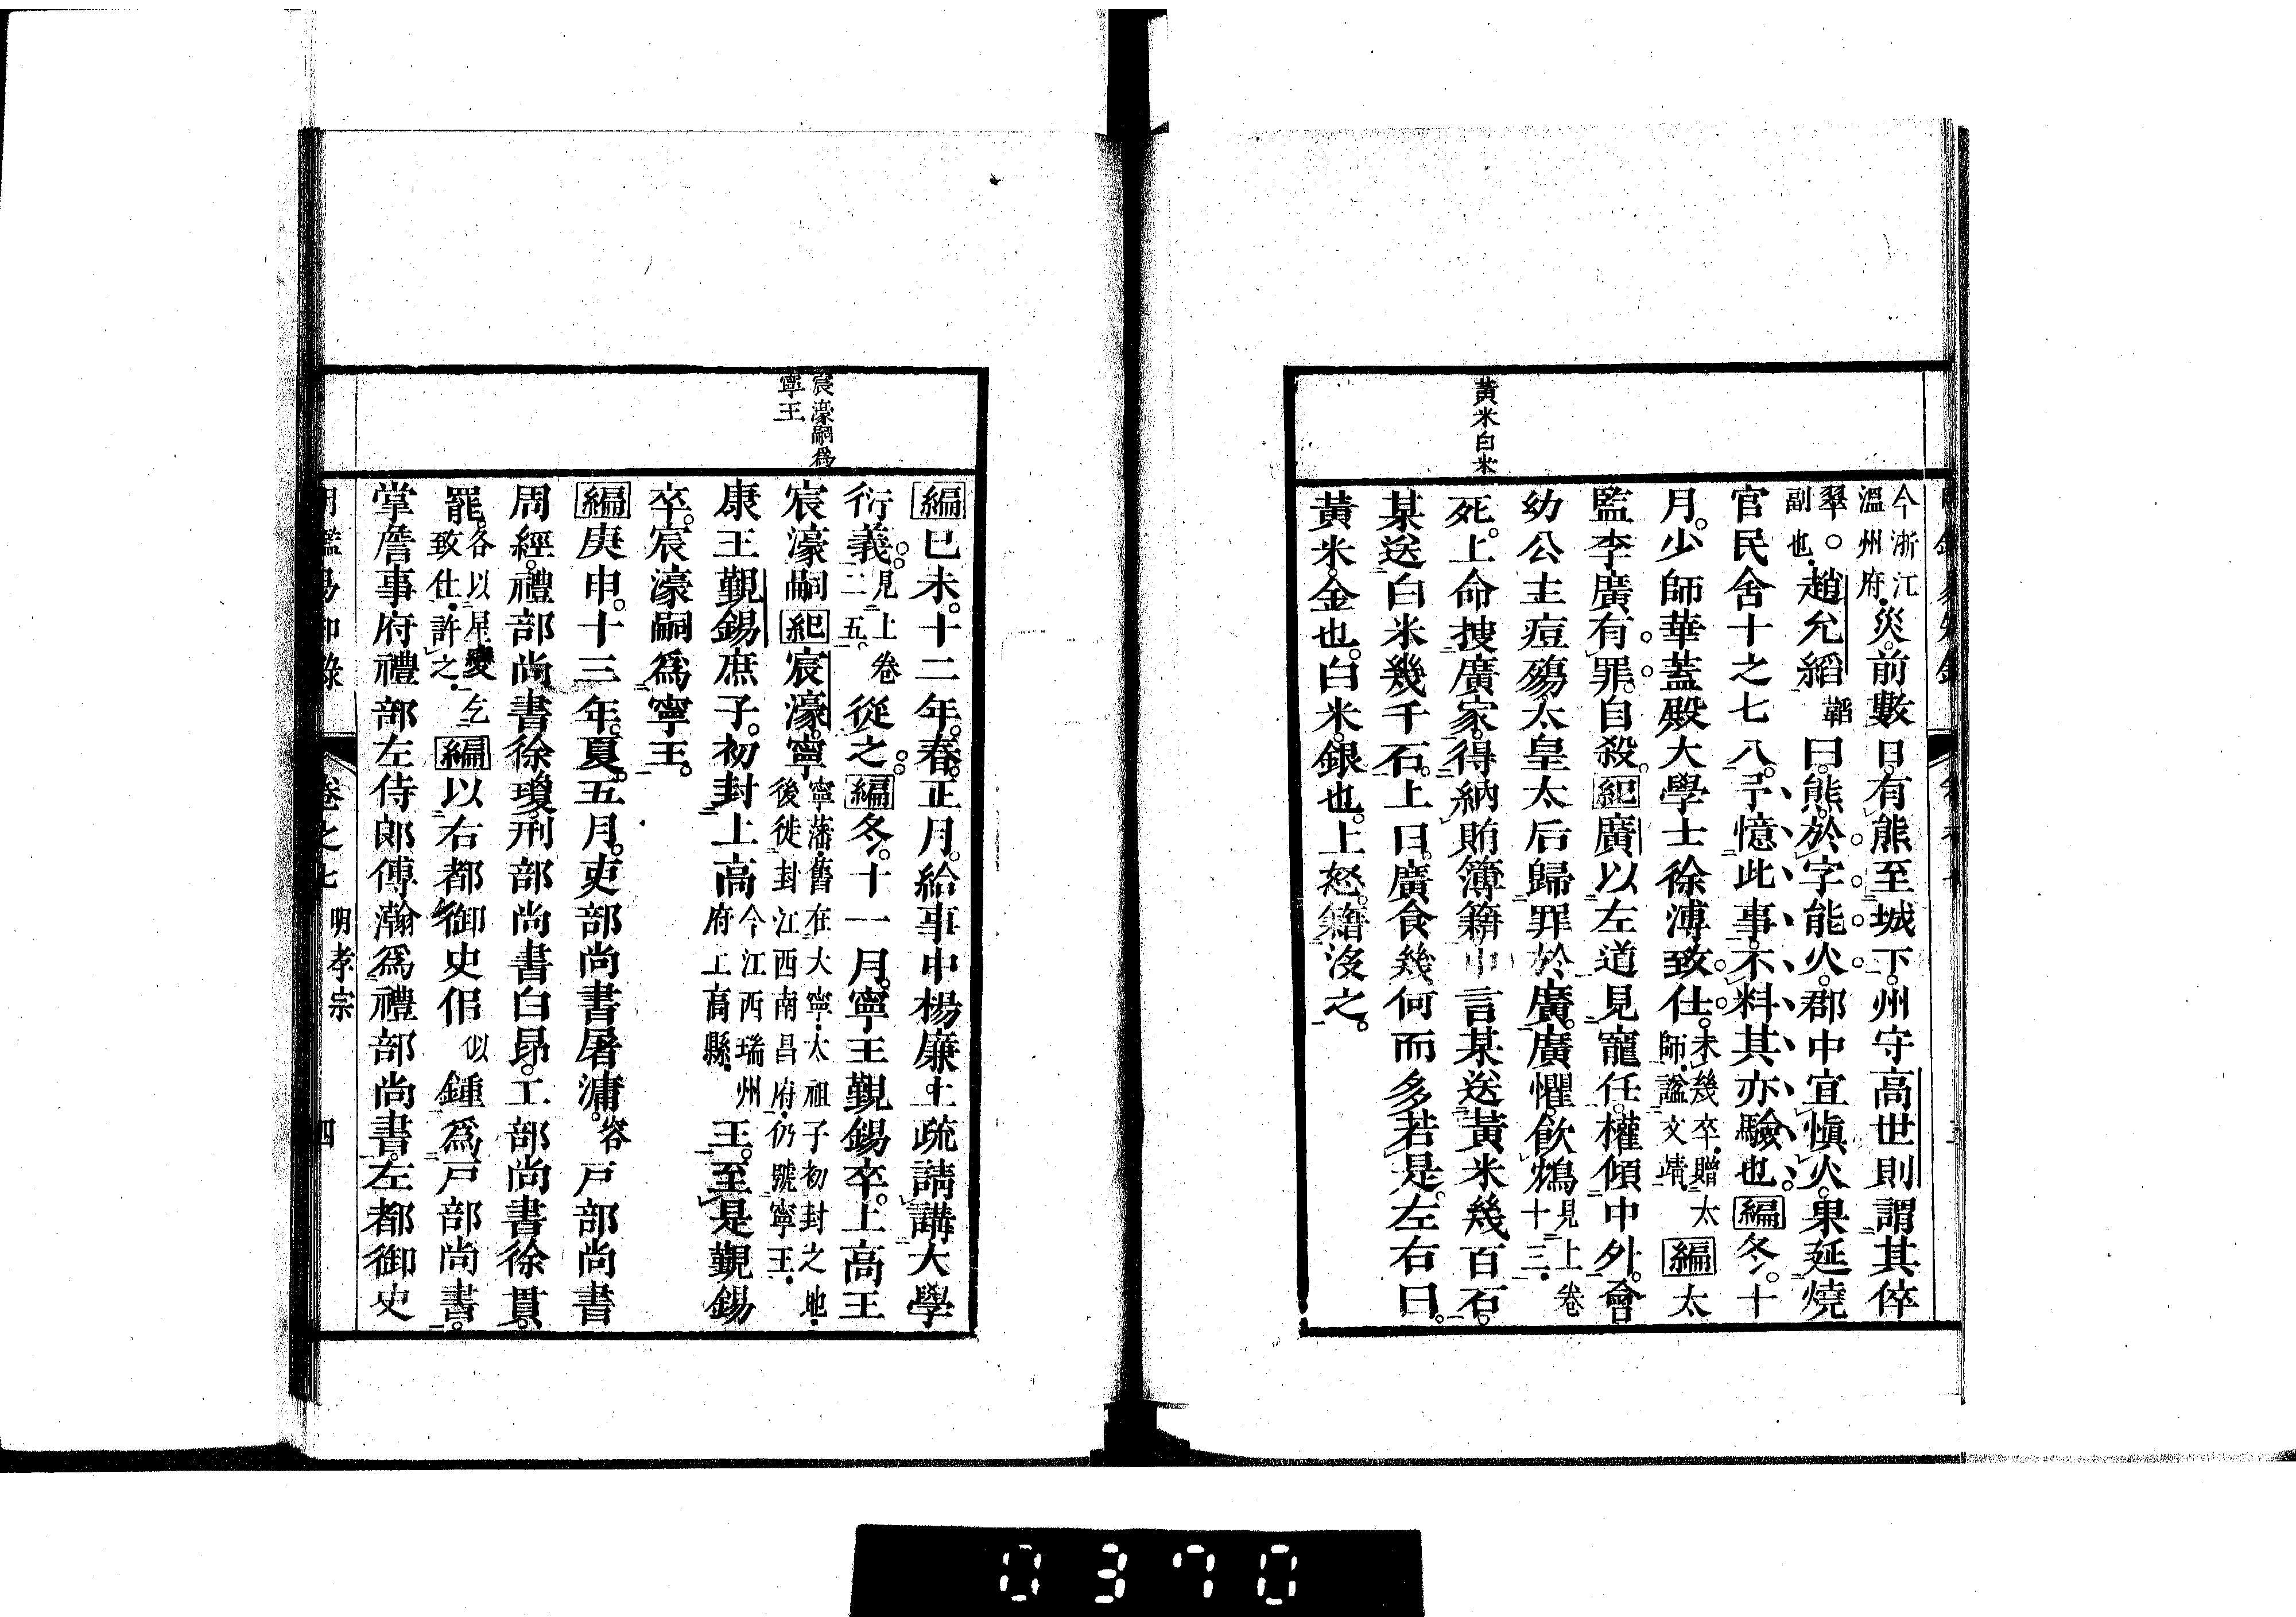 黃米白米
今浙江溫州府災前數日有熊至城下州守高世則謂其倅
翠。副也趙允縚鞱曰熊於字能火郡中宜愼火果延燒
官民舍十之七八予憶此事不料其亦驗也編冬十
月少師華蓋殿大學士徐溥致仕未幾卒贈太師謚文靖編太
監李廣有罪自殺紀廣以左道見寵任權傾中外會
幼公主痘殤太皇太后歸罪於廣廣懼飮鴆見上卷十三
死上命捜廣家得納賄簿籍中言某送黃米幾百石
某送白米幾千石上曰廣食幾何而多若是左右曰
黃米金也白米銀也上怒籍沒之
宸濠嗣爲
寧王
編已未十二年春正月給事中楊廉上疏請講大學
衍義見上卷二五從之編冬十一月寧王覲錫卒上高王
宸濠嗣紀宸濠寧寧藩舊在大寧太祖子初封之地後徙封江西南昌府仍號寧王
康王覲錫庶子初封上高今江西瑞州府上高縣王至是覲錫
卒宸濠嗣爲寧王
編庚申十三年夏五月吏部尚書屠滽容戸部尚書
周經禮部尚書徐瓊刑部尚書白昂工部尚書徐貫
罷各以星變乞致仕許之編以右都御史佀似鍾爲戸部尚書
掌詹事府禮部左侍郎傅瀚爲禮部尚書左都御史
明鑑易知錄 卷之七 明孝宗 四